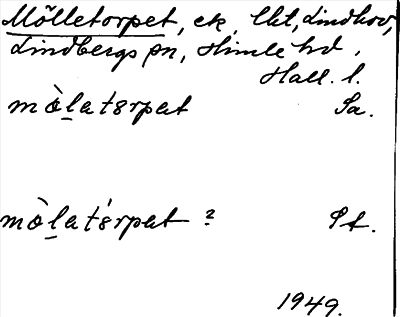 Mölletorpet, ek, lht, Lindhov,
Lindbergs sn, Himle hd,
Hall. l.
mòl̠atɵrpat Sa.
mòl̠atɵ́rpat ? St.
1949.